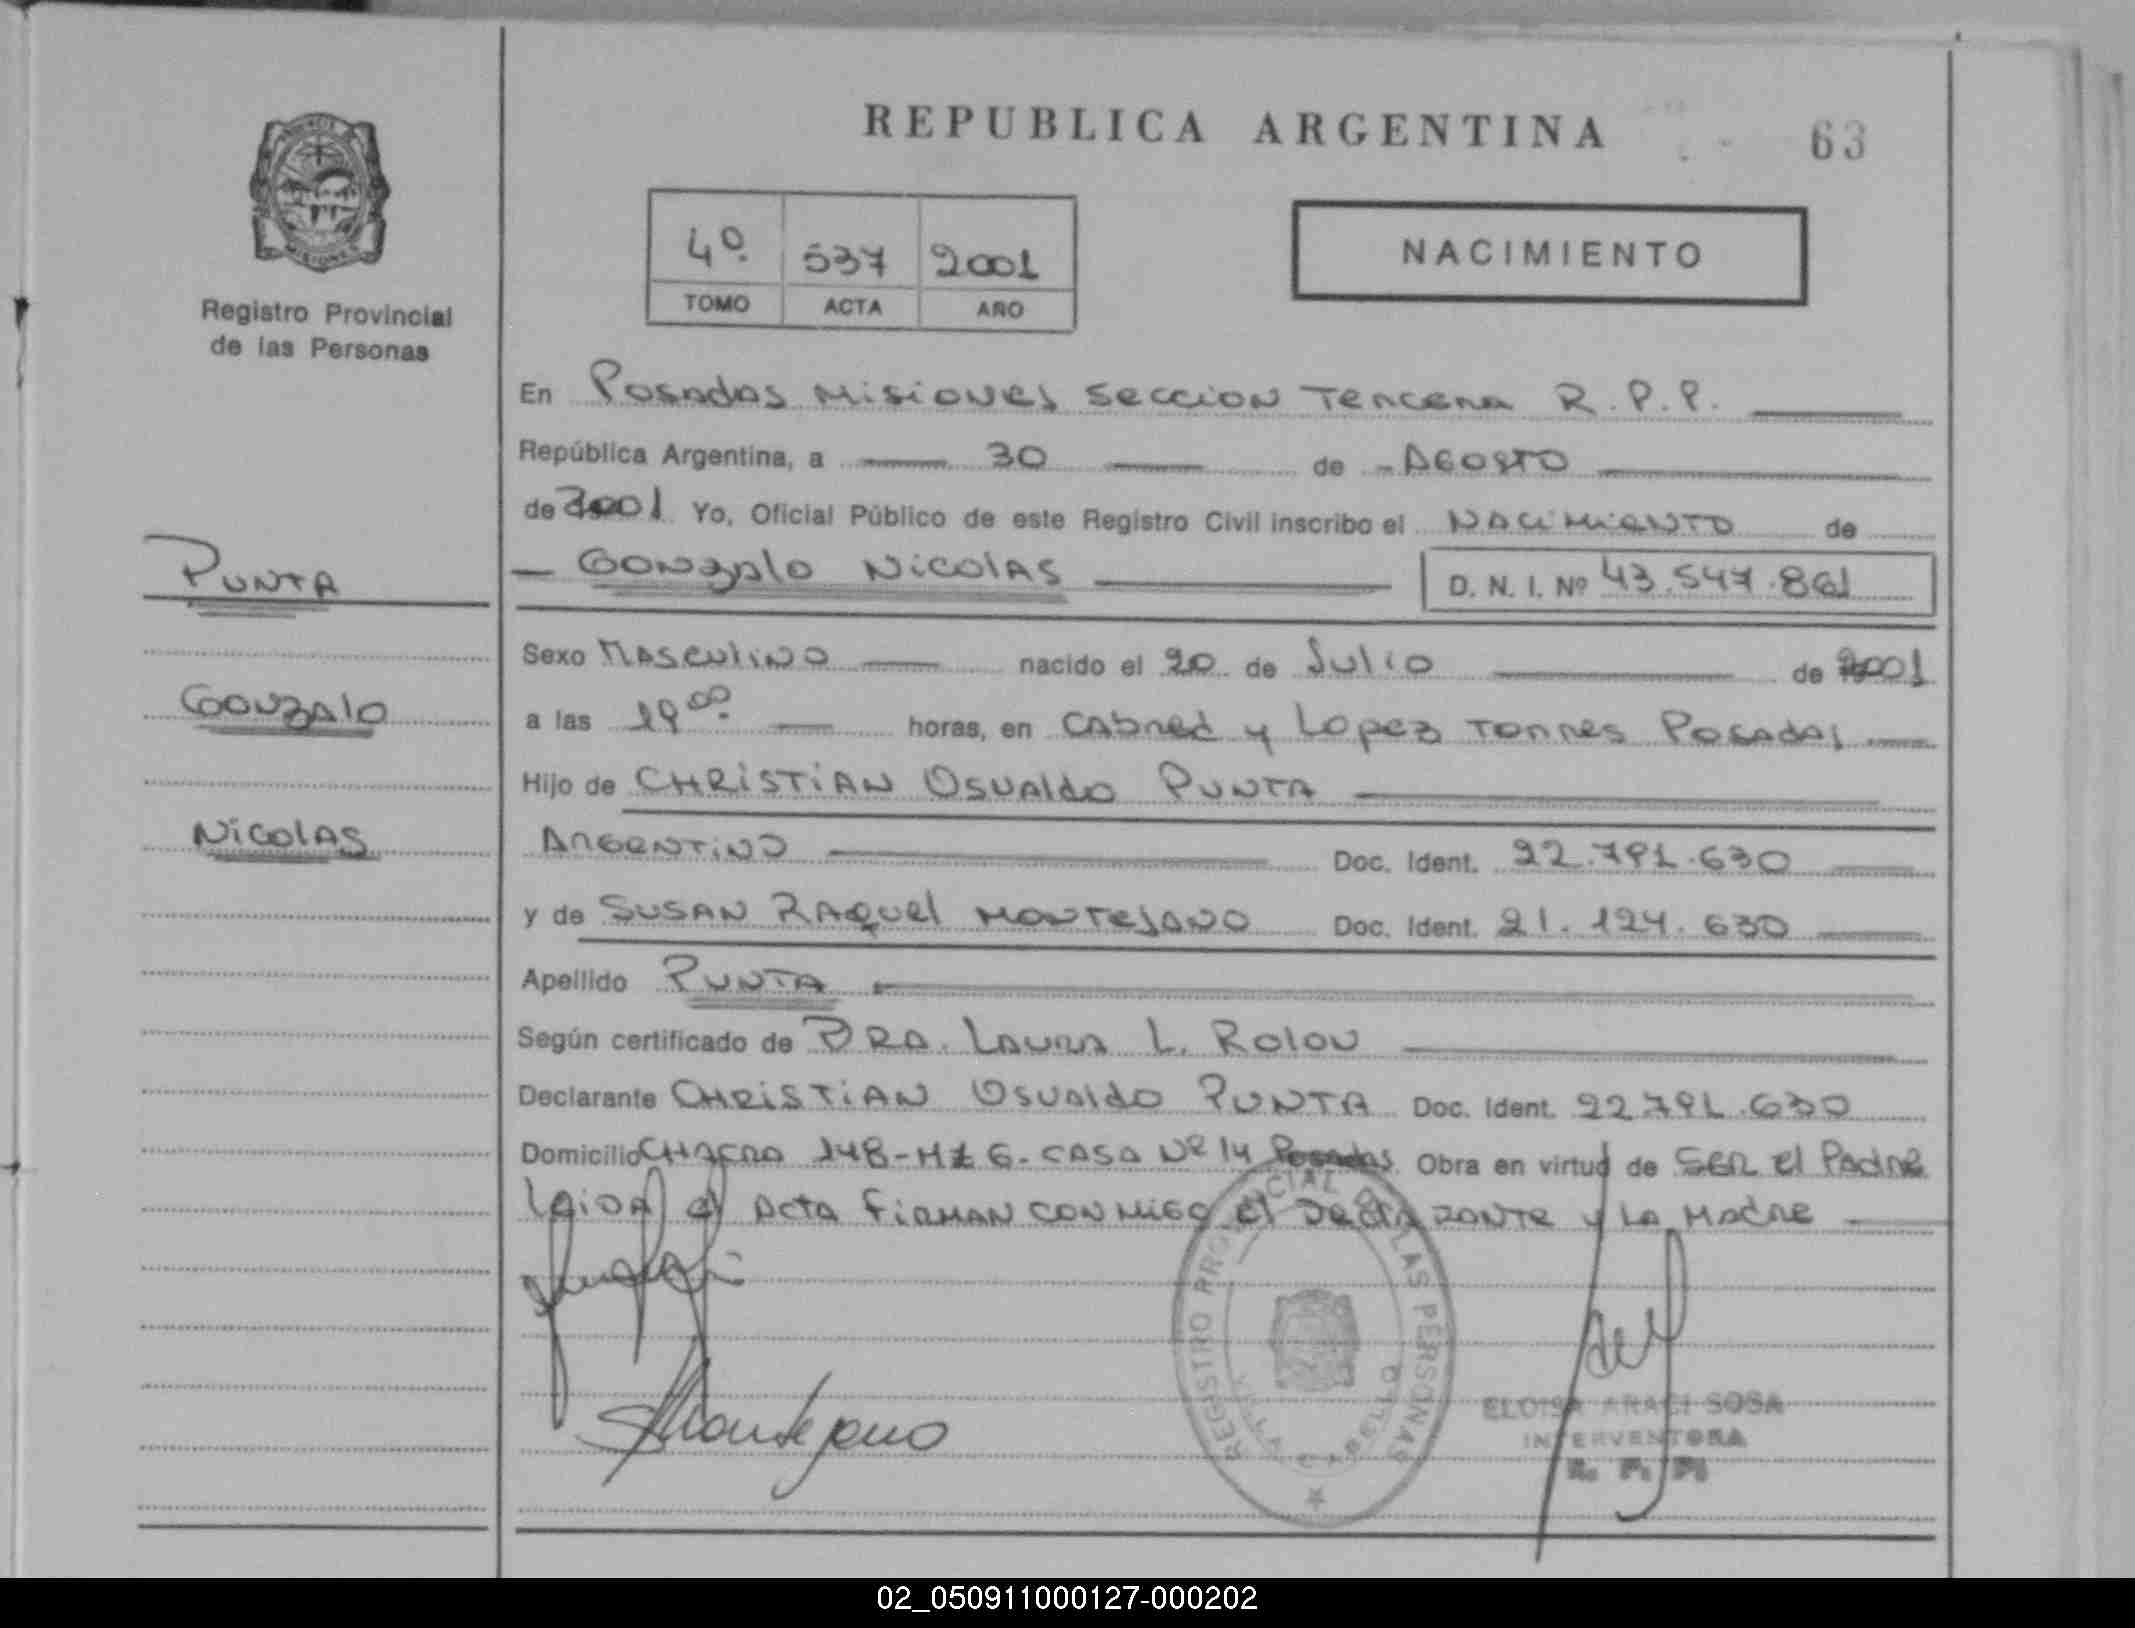 REPUBLICA ARGENTINA
63
Registro Provincial
de las Personas
4º 537 2001
TOMO ACTA AÑO
NACIMIENTO
En Posadas Misiones Seccion Tercera R.P.P.
República Argentina, a 30 de Agosto
de 2001 Yo, Oficial Público de este Registro Civil inscribo el Nacimiento de
Gonzalo Nicolas D. N. I. Nº 43.547.861
PUNTA
GONZAlO
NicolAS
Sexo Masculino nacido el 20 de Julio de 2001
a las 19 00 horas, en Cabred y Lopez Torres Posadas
Hijo de CHRiSTiAN Osvaldo PUNTA
Argentino Doc. Ident. 22.791.630
y de SUSAN RAquel MONTEJANO Doc. Ident. 21.124.630
Apellido PUNTA
Según certificado de DRA. Laura L. Rolon
Declarante CHRiSTiAN Osvaldo PUNTA Doc. Ident. 22.791.630
Domicilio CHACRA 148-Mz 6. CASA Nº 14 Posadas Obra en virtud de SER el Padre
leida el Acta Firman conmigo el Declarante y La Madre
SMontejano
REGISTRO PROVINCIAL DE LAS PERSONAS
ELOISA ARACI SOSA
INTERVENTORA
R. P. P.
02_050911000127-000202